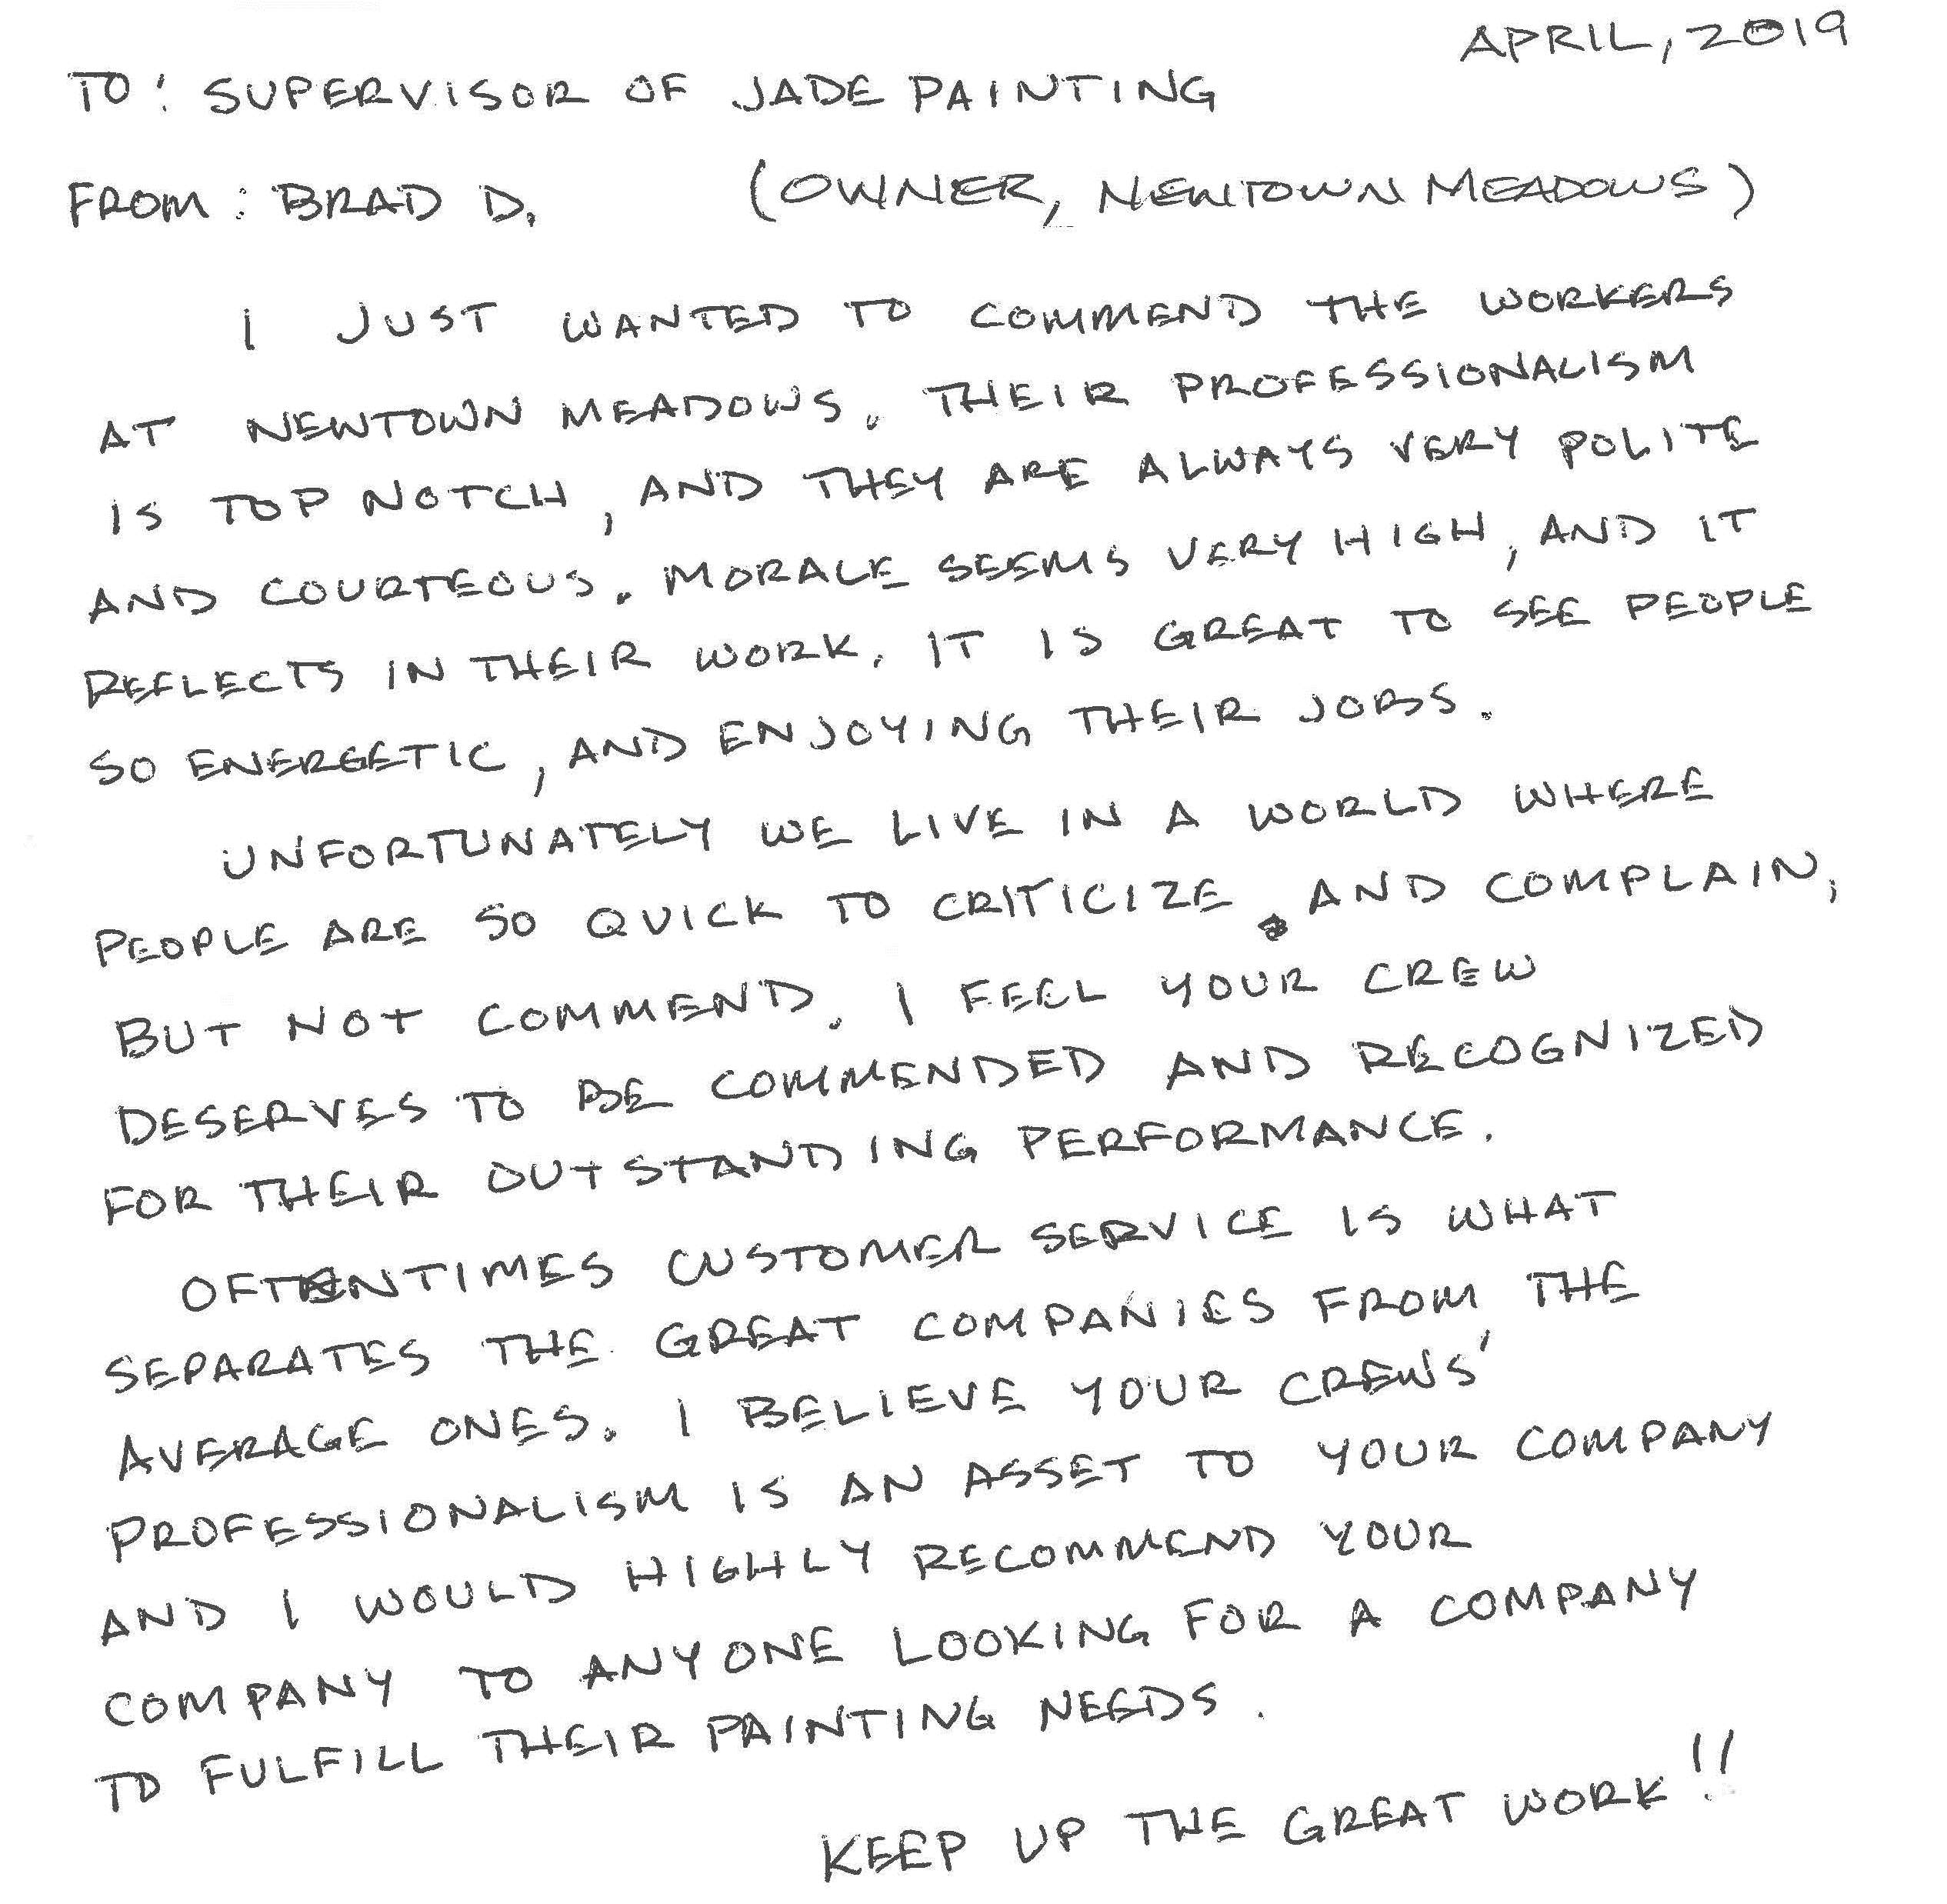 APRIL, 2019
TO: SUPERVISOR OF JADE PAINTING
FROM: BRAD D. (OWNER, NEWTOWN MEADOWS)
I JUST WANTED TO COMMEND THE WORKERS
AT NEWTOWN MEADOWS. THEIR PROFESSIONALISM
IS TOP NOTCH, AND THEY ARE ALWAYS VERY POLITE
AND COURTEOUS. MORALE SEEMS VERY HIGH, AND IT
REFLECTS IN THEIR WORK. IT IS GREAT TO SEE PEOPLE
SO ENERGETIC, AND ENJOYING THEIR JOBS.
UNFORTUNATELY WE LIVE IN A WORLD WHERE
PEOPLE ARE SO QUICK TO CRITICIZE AND COMPLAIN,
BUT NOT COMMEND. I FEEL YOUR CREW
DESERVES TO BE COMMENDED AND RECOGNIZED
FOR THEIR OUTSTANDING PERFORMANCE.
OFTENTIMES CUSTOMER SERVICE IS WHAT
SEPARATES THE GREAT COMPANIES FROM THE
AVERAGE ONES. I BELIEVE YOUR CREWS'
PROFESSIONALISM IS AN ASSET TO YOUR COMPANY
AND I WOULD HIGHLY RECOMMEND YOUR
COMPANY TO ANYONE LOOKING FOR A COMPANY
TO FULFILL THEIR PAINTING NEEDS.
KEEP UP THE GREAT WORK!!